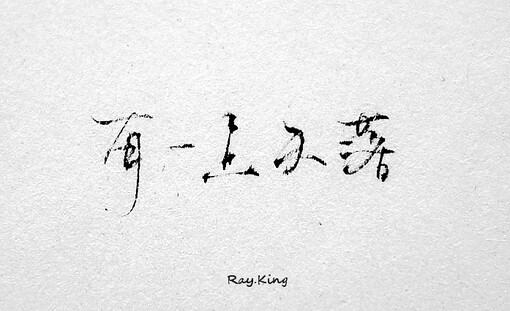 一上不落
Ray.King